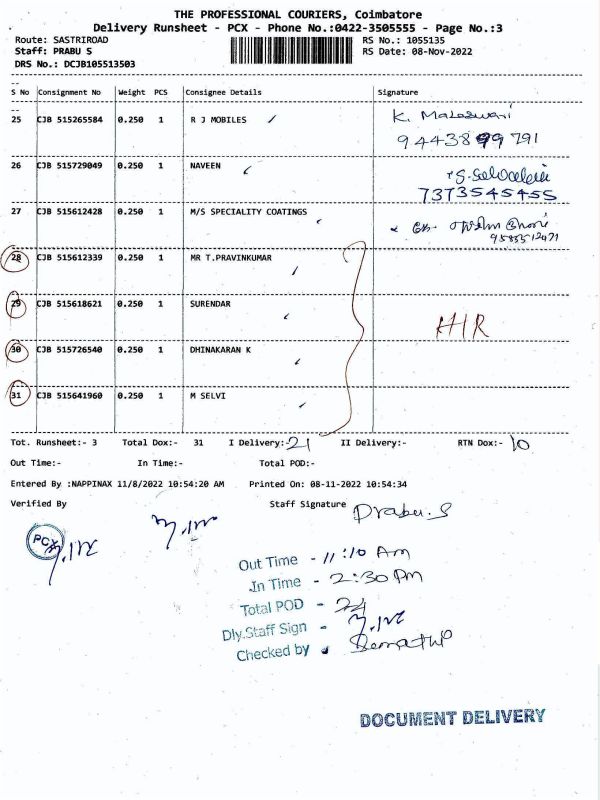 THE PROFESSIONAL COURIERS, Coimbatore
Delivery Runsheet - PCX - Phone No.:0422-3505555 - Page No.:3
Route: SASTRIROAD RS No.: 1055135
Staff: PRABU S RS Date: 08-Nov-2022
DRS No.: DCJB105513503
S No Consignment No Weight PCS Consignee Details Signature
25 CJB 515265584 0.250 1 R J MOBILES K. Maheswari
9443899791
26 CJB 515729049 0.250 1 NAVEEN
7373545455
27 CJB 515612428 0.250 1 M/S SPECIALITY COATINGS
28 CJB 515612339 0.250 1 MR T.PRAVINKUMAR
29 CJB 515618621 0.250 1 SURENDAR
30 CJB 515726540 0.250 1 DHINAKARAN K
31 CJB 515641960 0.250 1 M SELVI
Tot. Runsheet:- 3 Total Dox:- 31 I Delivery:- 21 II Delivery:- RTN Dox:- 10
Out Time:- In Time:- Total POD:-
Entered By :NAPPINAX 11/8/2022 10:54:20 AM Printed On: 08-11-2022 10:54:34
Verified By Staff Signature Prabu.S
PCX
Out Time - 11:10 Am
In Time - 2:30 Pm
Total POD -
Dly.Staff Sign -
Checked by
DOCUMENT DELIVERY